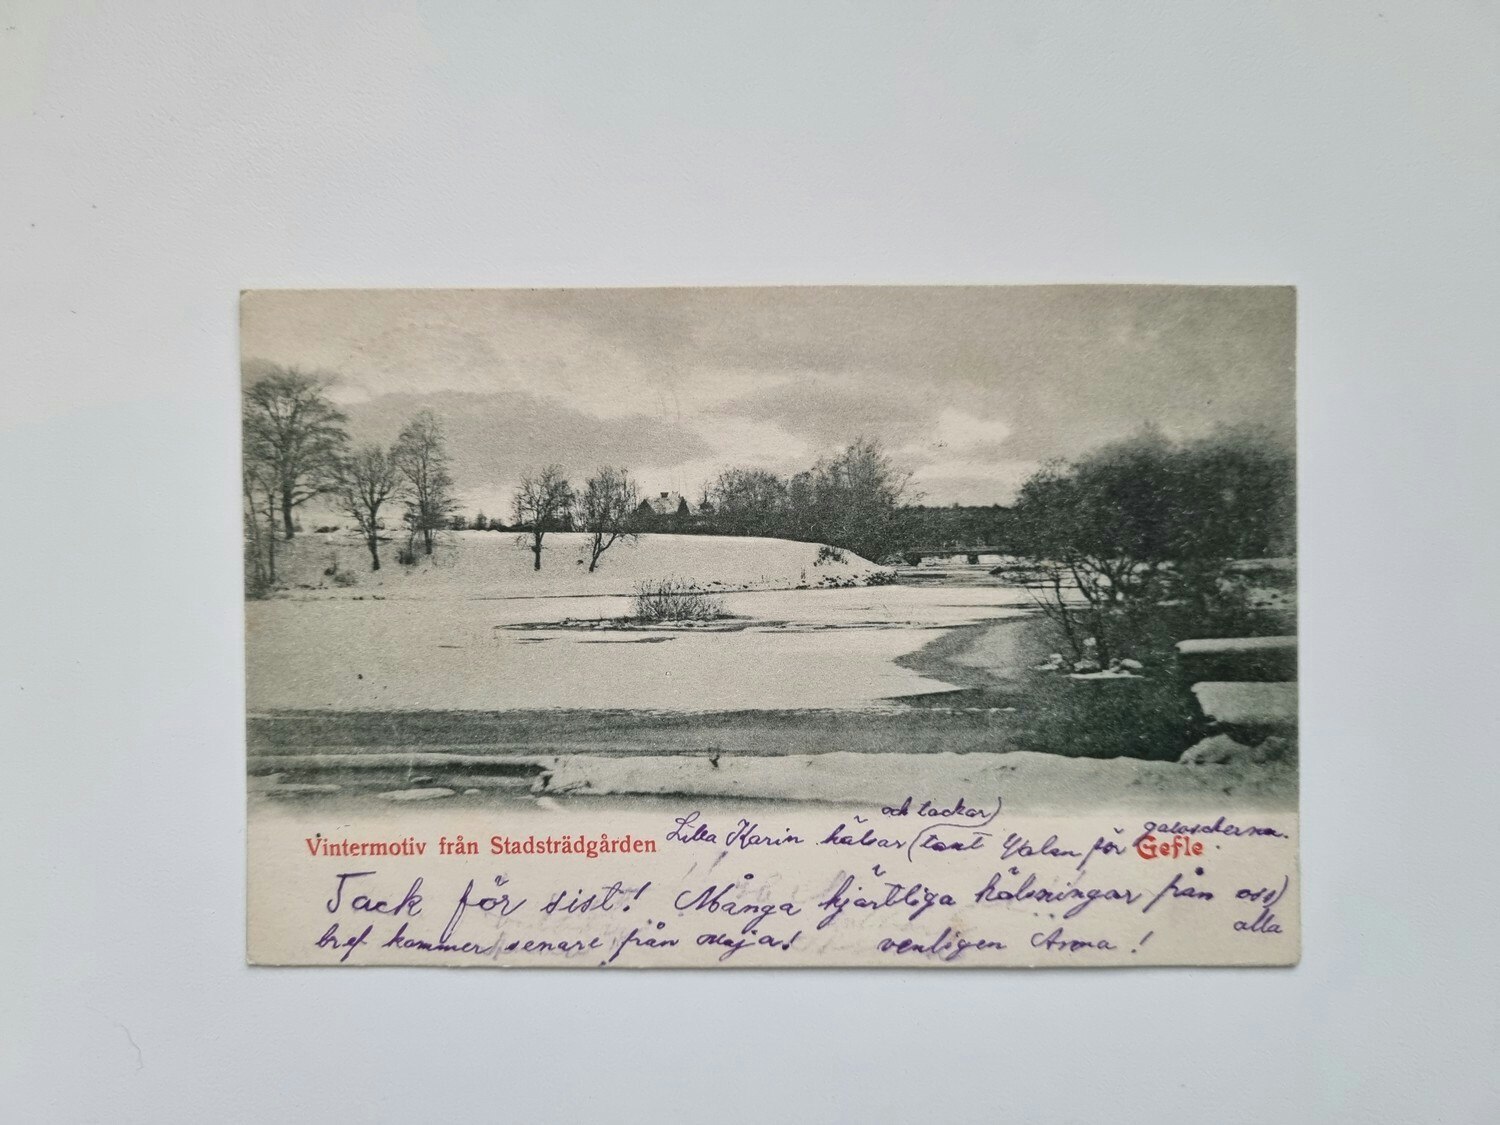 och tackar)
Vintermotiv från Stadsträdgården Lilla Karin hälsar (tant för galoscherna. Gefle
Tack för sist! Många hjärtliga hälsningar från oss
alla
bref kommer senare från venligen Anna!